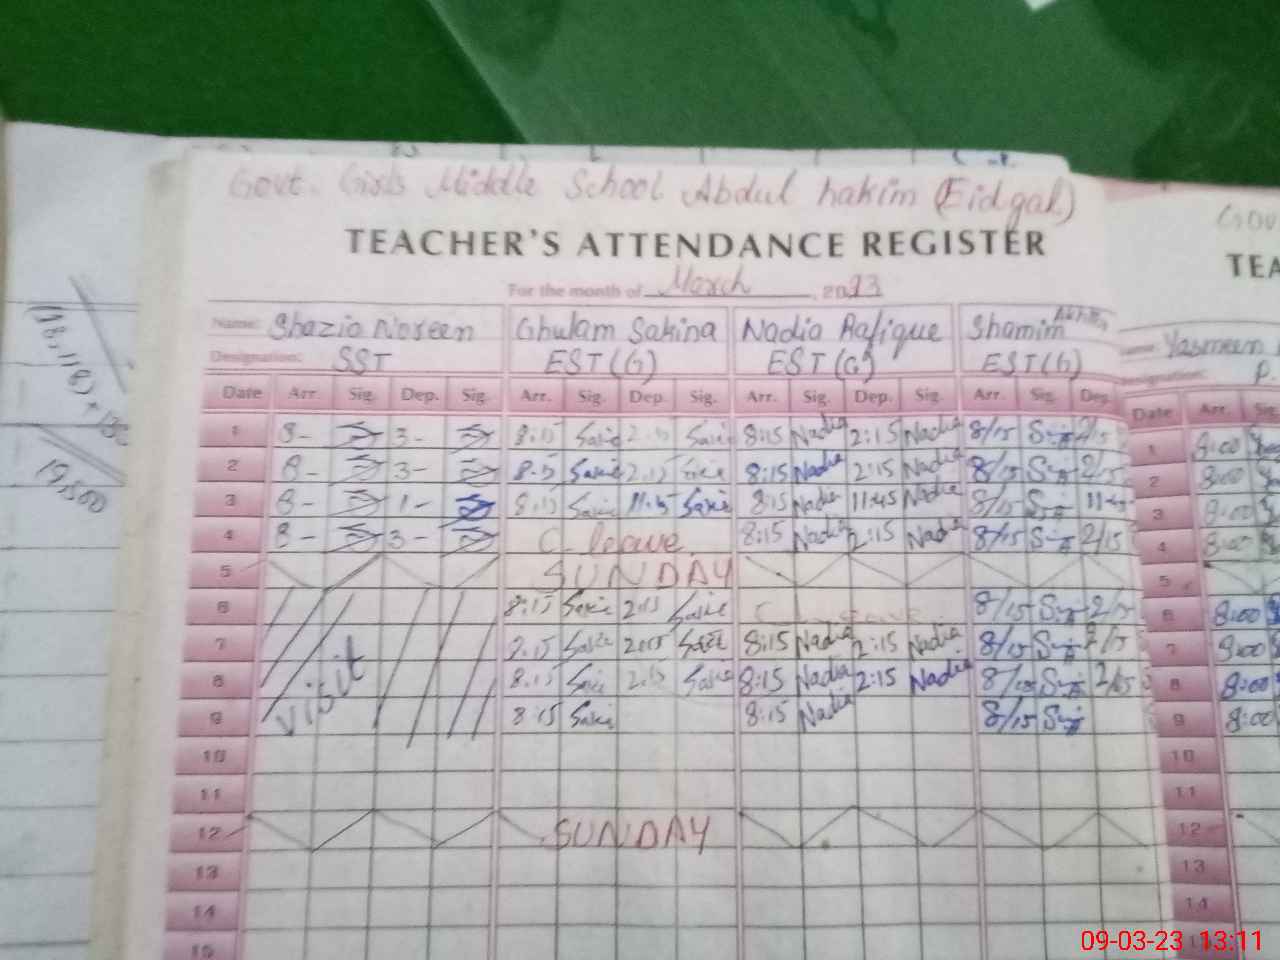 Govt. Girls Middle School Abdul hakim (Eidgah)
TEACHER'S ATTENDANCE REGISTER
For the month of March, 2023
Name: Shazia Noreen Ghulam Sakina Nadia Rafique Shamim Akhtar Yasmeen
Designation: SST EST (G) EST (G) EST (G) P.
Date Arr. Sig. Dep. Sig. Arr. Sig. Dep. Sig. Arr. Sig. Dep. Sig. Arr. Sig. Dep. Date Arr. Sig
1 8- 3- 8:15 Sakie 2:15 Sakie 8:15 Nadia 2:15 Nadia 8/15 2/15 1 8:00
2 8- 3- 8:15 Sakie 2:15 Sakie 8:15 Nadia 2:15 Nadia 8/15 2/15 2 8:00
3 8- 1- 8:15 Sakie 11:45 Sakie 8:15 Nadia 11:45 Nadia 8/15 11-4 3 8:00
4 8- 3- C- leave 8:15 Nadia 2:15 Nadia 8/15 2/15 4 8:00
5 SUNDAY 5
6 8:15 Sakie 2:15 Sakie C- leave 8/15 2/15 6 8:00
7 8:15 Sakie 2:15 Sakie 8:15 Nadia 2:15 Nadia 8/15 2/15 7 8:00
8 visit 8:15 Sakie 2:15 Sakie 8:15 Nadia 2:15 Nadia 8/15 2/15 8 8:00
9 8:15 Sakie 8:15 Nadia 8/15 9 8:00
10 10
11 11
12 SUNDAY 12
13 13
14 14
15
09-03-23 13:11